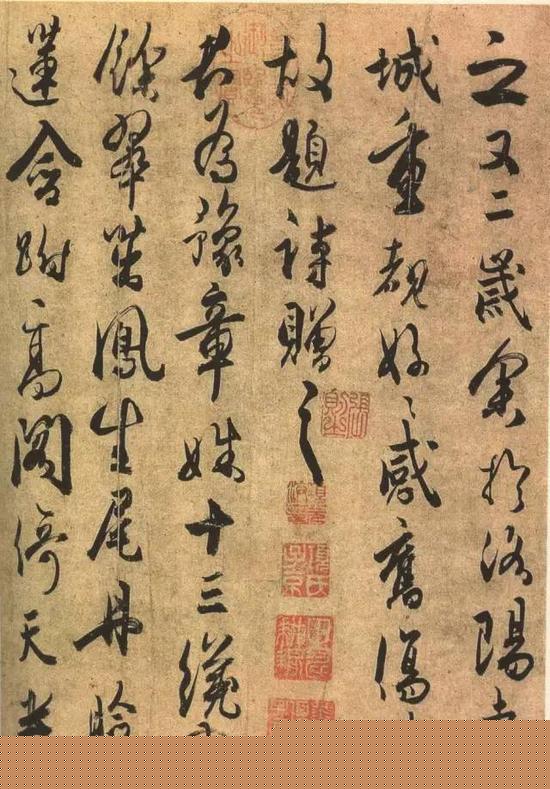 之又二歲余於洛陽
城重覩好〻感舊傷
故題詩贈之
君為豫章姝十三纔
餘翠茁鳳生尾丹臉
蓮含跗高閣倚天